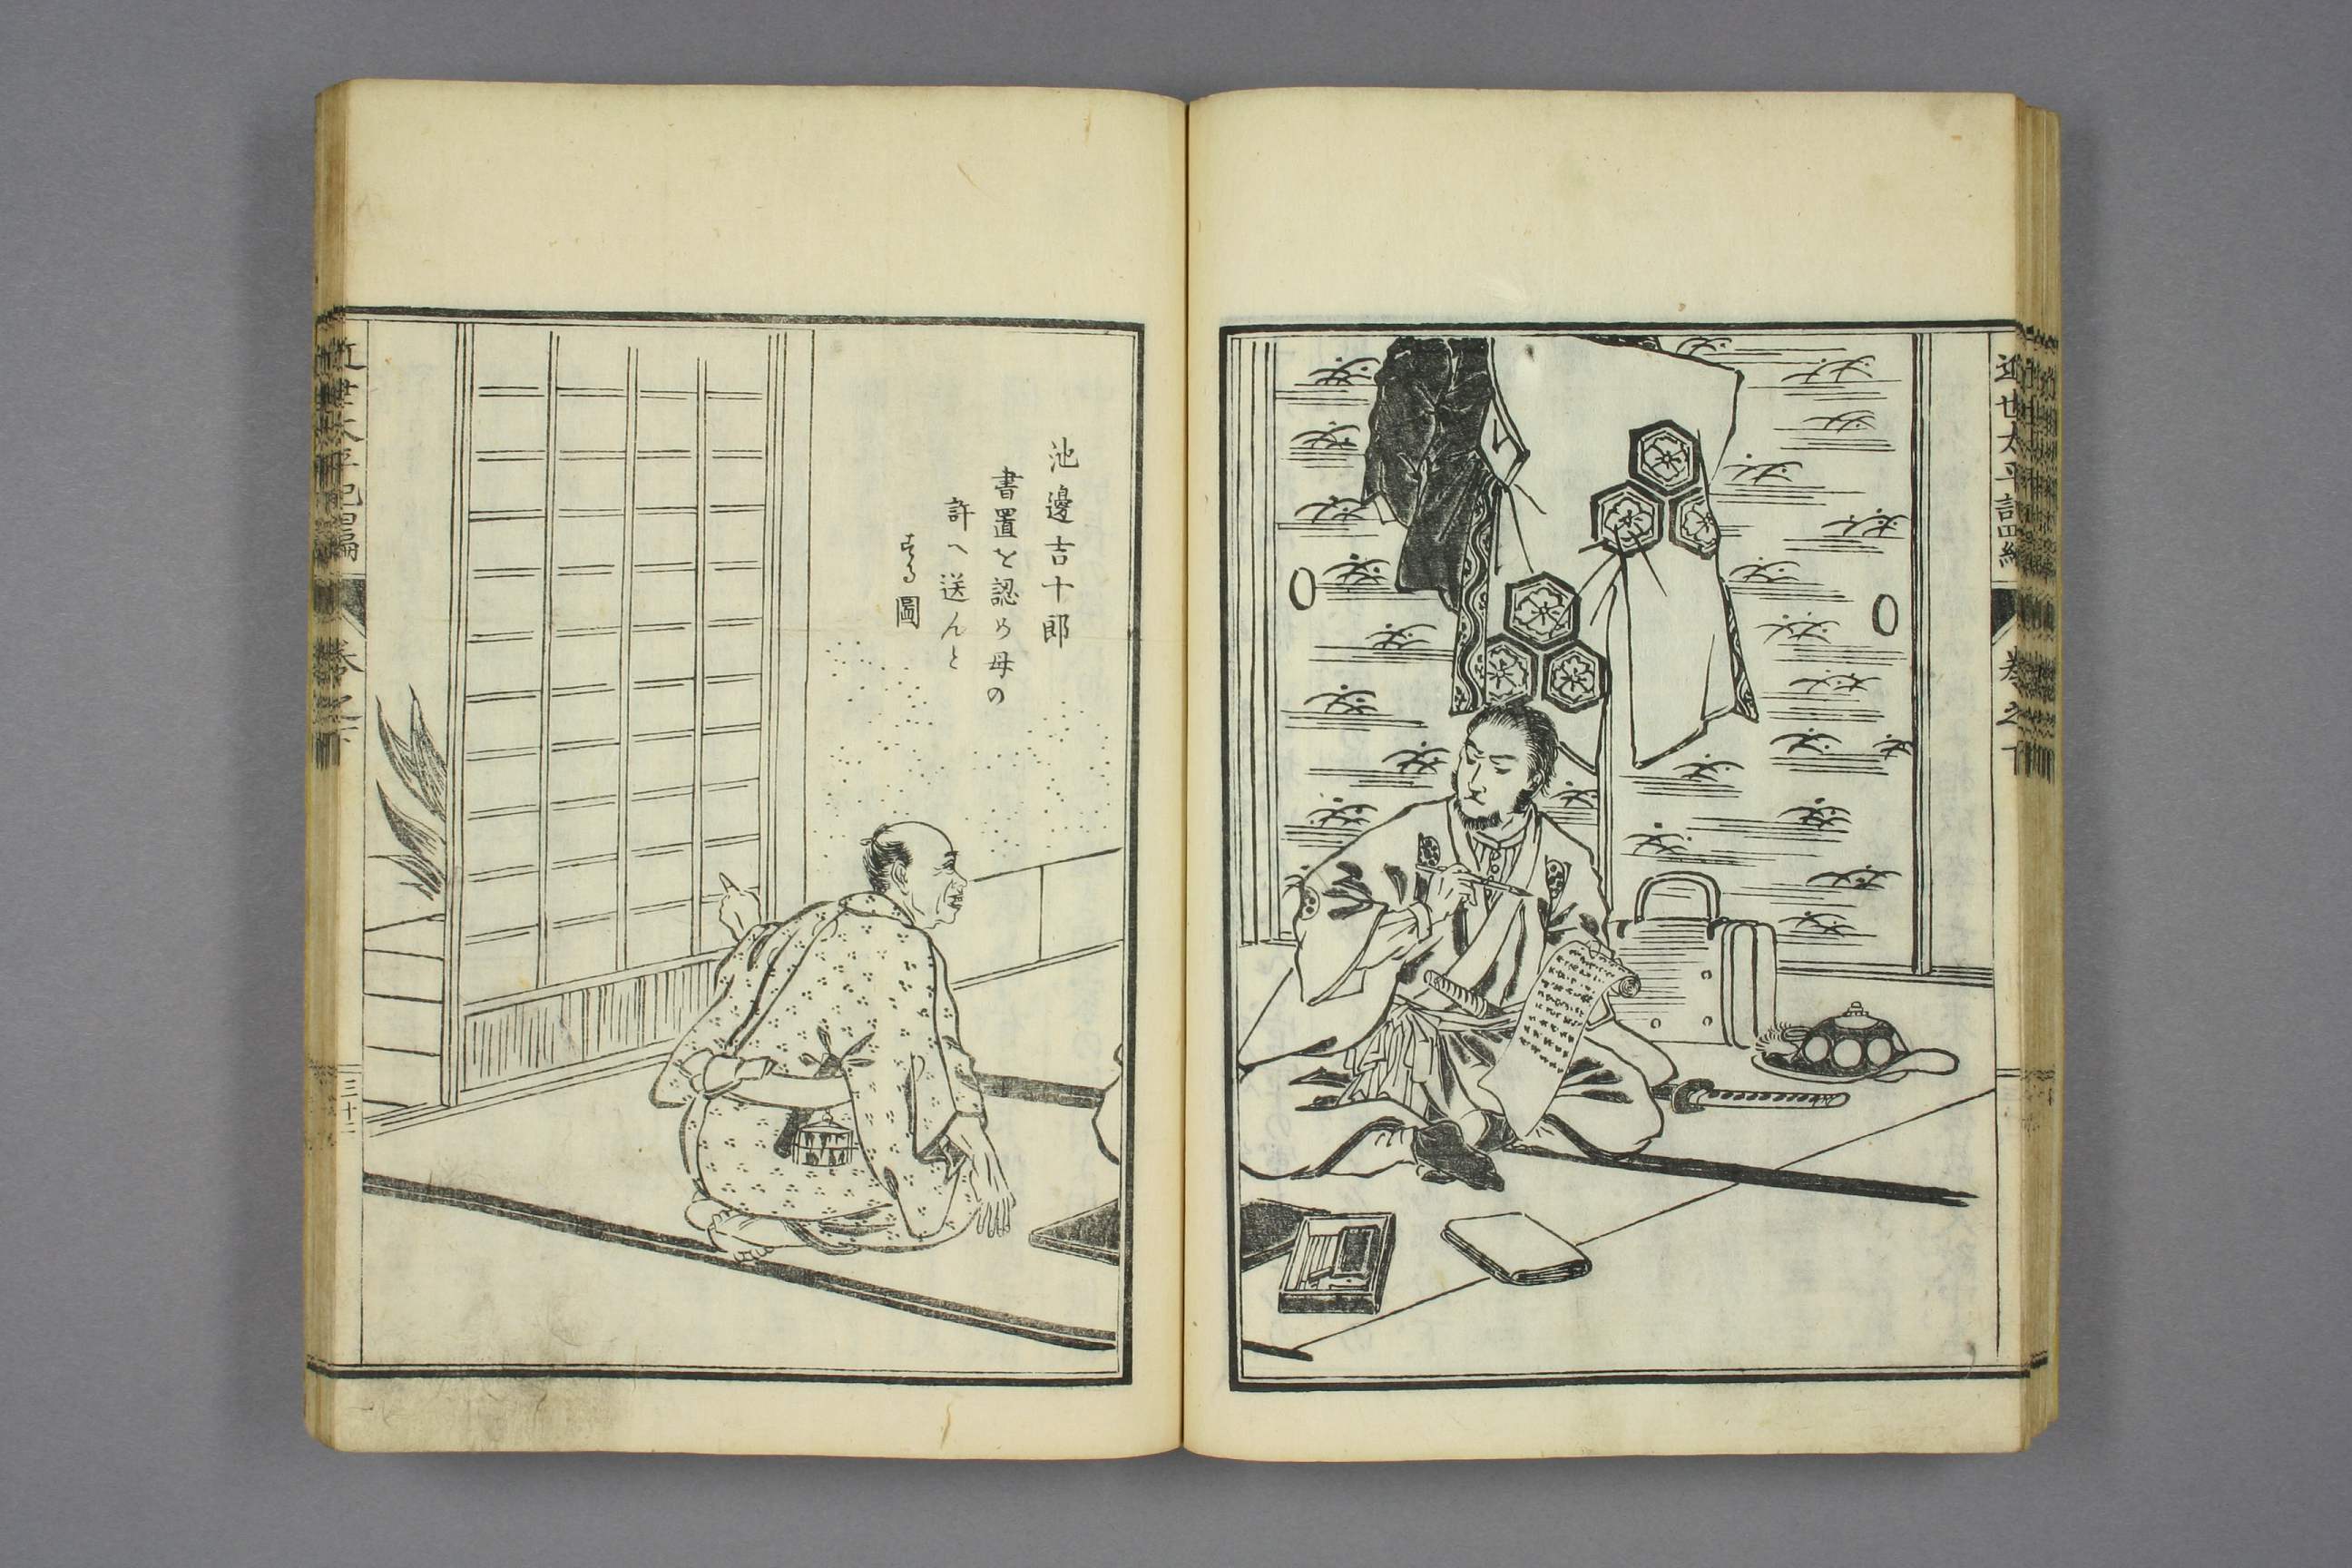 近世太平記四編
卷之下
池邊吉十郎
書置を認め母の
許へ送んと
する圖
近世太平記四編
卷之下
三十三